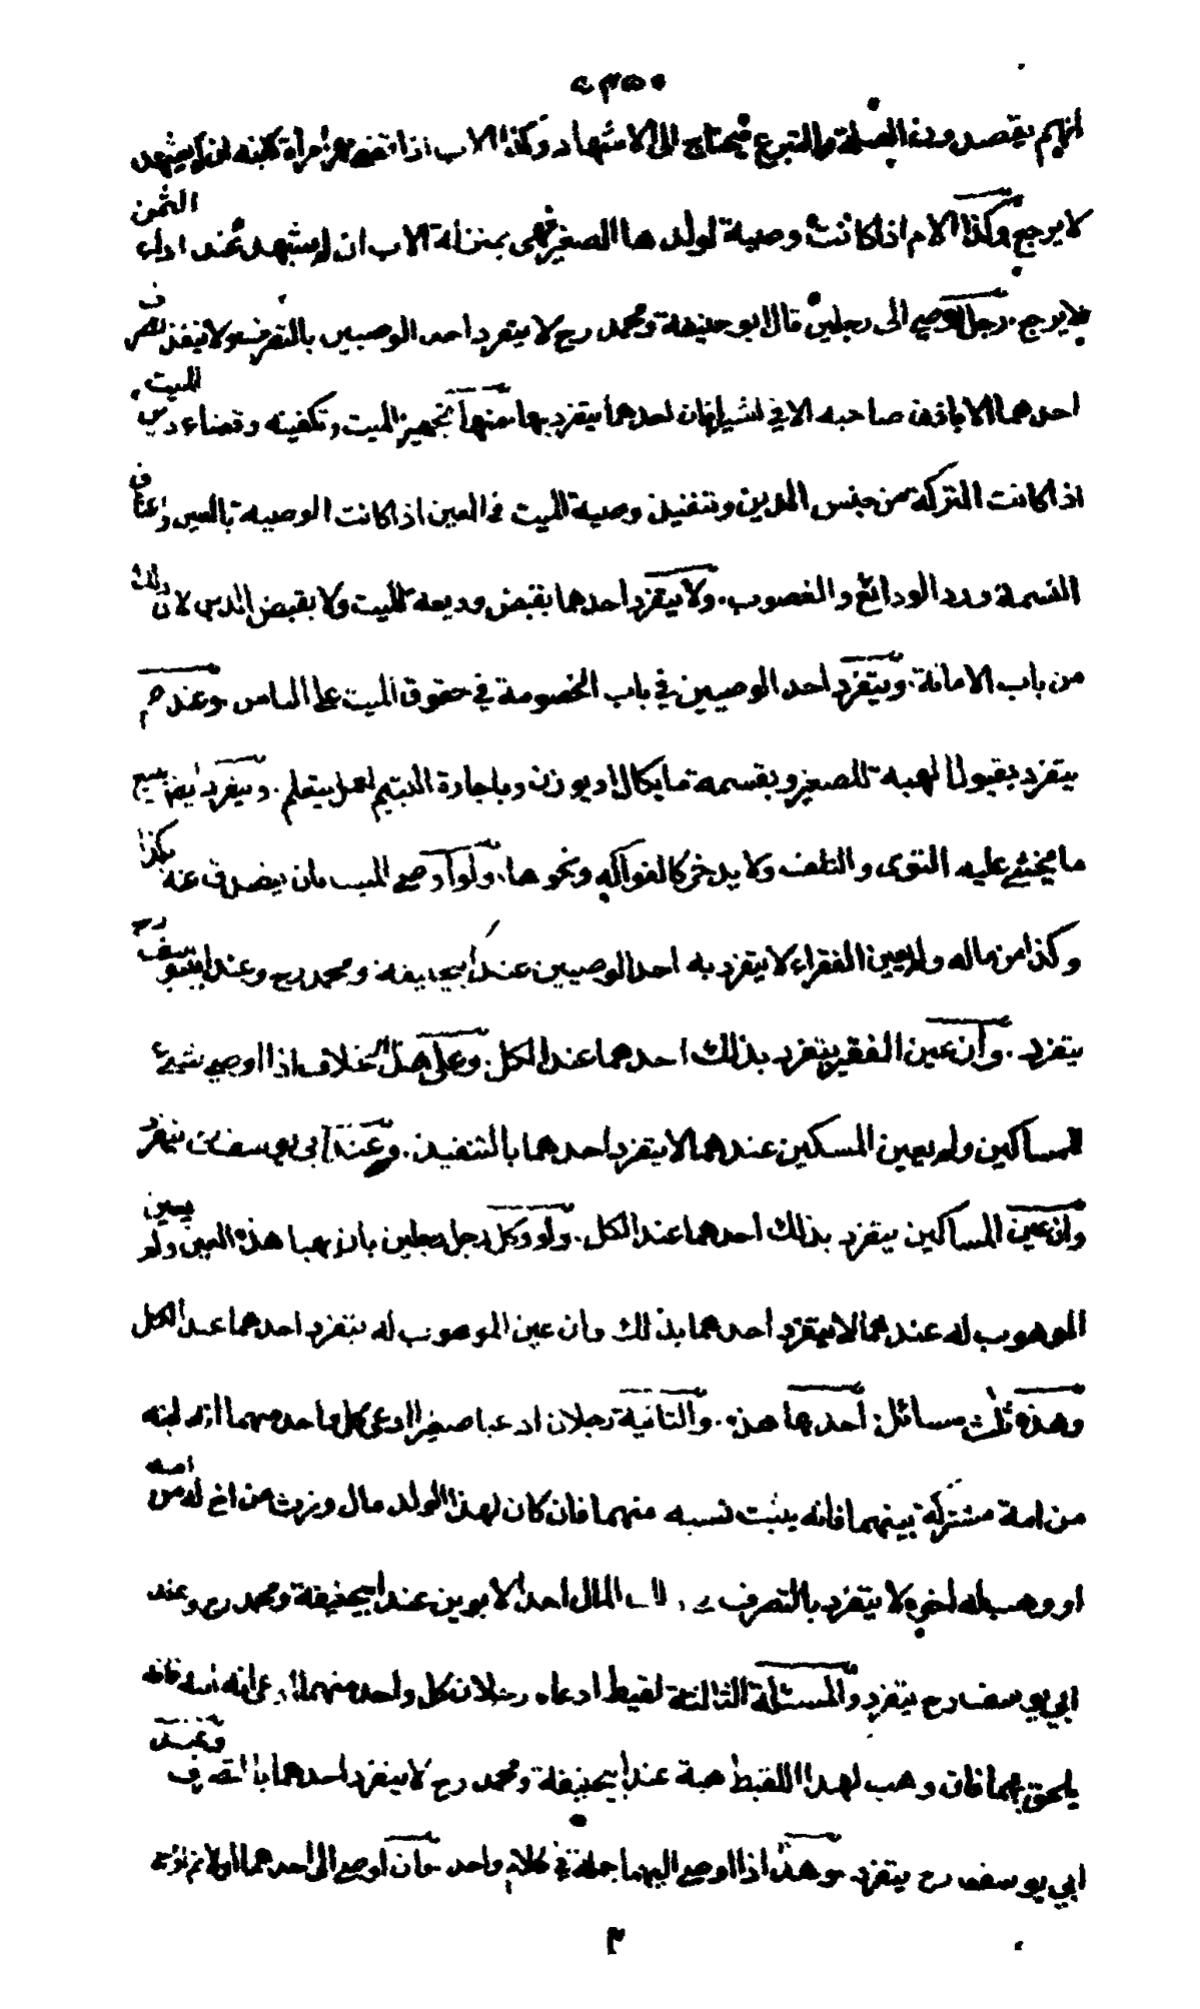 انهم يقصدون الصلة والتبرع فيحتاج الى الاشهاد وكذا الاب اذا قضى مهر امرأة ابنه ان لم يشهد
لا يرجع وكذا الام اذا كانت وصية لولدها الصغير فهي بمنزلة الاب ان لم يشهد عند اداء الثمن
لا يرجع . رجل اوصى الى رجلين قال ابو حنيفة ومحمد رح لا يتفرد احد الوصيين بالتصرف ولا ينفذ تصرف
احدهما الا باذن صاحبه الا في اشياء فان احدهما يتفرد بها منها تجهيز الميت وتكفينه وقضاء دين الميت
اذا كانت التركة من جنس الدين وتنفيذ وصية الميت في العين اذا كانت الوصية بالعين واعتاق
النسمة ورد الودائع والغصوب . ولا يتفرد احدهما بقبض وديعة للميت ولا بقبض الدين لان ذلك
من باب الامانة . ويتفرد احد الوصيين في باب الخصومة في حقوق الميت على الناس وعندهم
يتفرد بقبول الهبة للصغير وبقسمة ما يكال او يوزن وباجارة اليتيم لعمل يتعلم . ويتفرد ايضا ببيع
ما يخشى عليه التوى والتلف ولا يدخر كالفواكه ونحوها . ولو اوصى الميت بان يتصدق عنه بكذا
وكذا من ماله ولم يعين الفقراء لا يتفرد به احد الوصيين عند ابيحنيفة ومحمد رح وعند ابي يوسف رح
يتفرد . وان عين الفقير يتفرد بذلك احدهما عند الكل . وعلى هذا الخلاف اذا اوصى بشيء
للمساكين ولم يعين المسكين عندهما لا يتفرد احدهما بالتنفيذ . وعند ابي يوسف رح يتفرد
وان عين المساكين يتفرد بذلك احدهما عند الكل . ولو وكل رجل رجلين بان يهبا هذه العين ولم يعين
الموهوب له عندهما لا يتفرد احدهما بذلك وان عين الموهوب له يتفرد احدهما عند الكل
وهذه ثلث مسائل احدها هذه . والثانية رجلان ادعيا صغيرا ادعى كل واحد منهما انه ابنه
من امة مشتركة بينهما فانه يثبت نسبه منهما فان كان لهذا الولد مال ورث من اخ له من امه
او وهب له اخوه لا يتفرد بالتصرف في ذلك المال احد الابوين عند ابيحنيفة ومحمد رح وعند
ابي يوسف رح يتفرد والمسئلة الثالثة لقيط ادعاه رجلان كل واحد منهما ادعى انه ابنه فانه
يلحق بهما فان وهب لهذا اللقيط هبة عند ابيحنيفة ومحمد رح لا يتفرد احدهما بالتصرف وعند
ابي يوسف رح يتفرد وهذا اذا اوصى اليهما جملة في كلام واحد وان اوصى الى احدهما اولا ثم